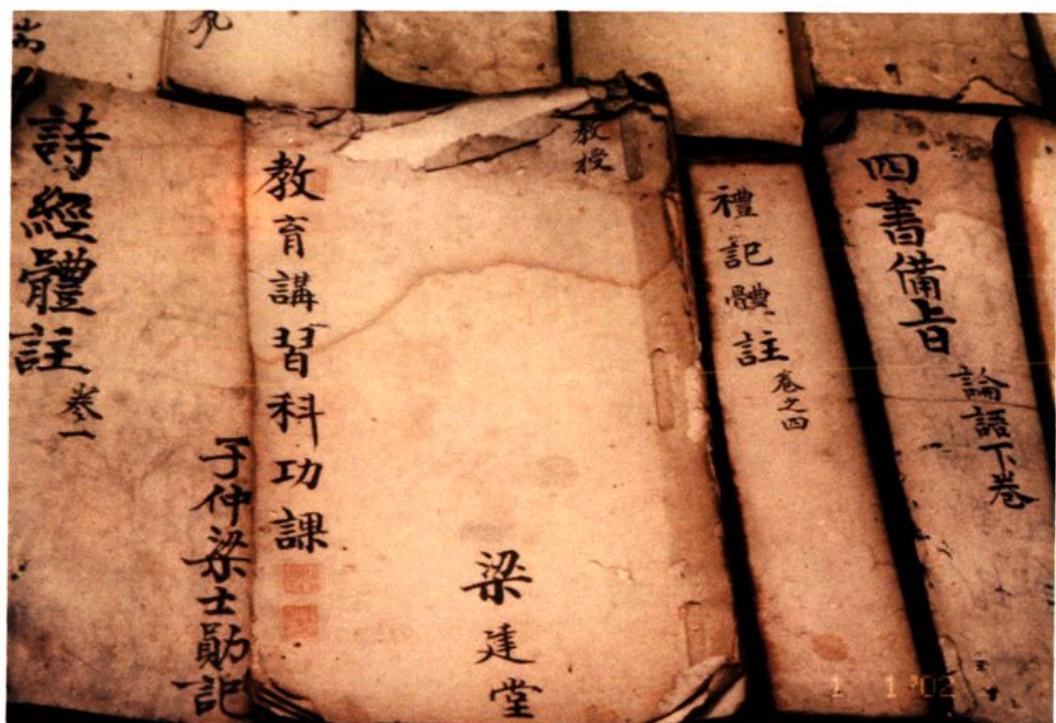 詩經體註
卷一
于仲梁士勛記
教授
教育講習科功課
梁建堂
禮記體註
卷之四
四書備旨
論語下卷
1 1 '02